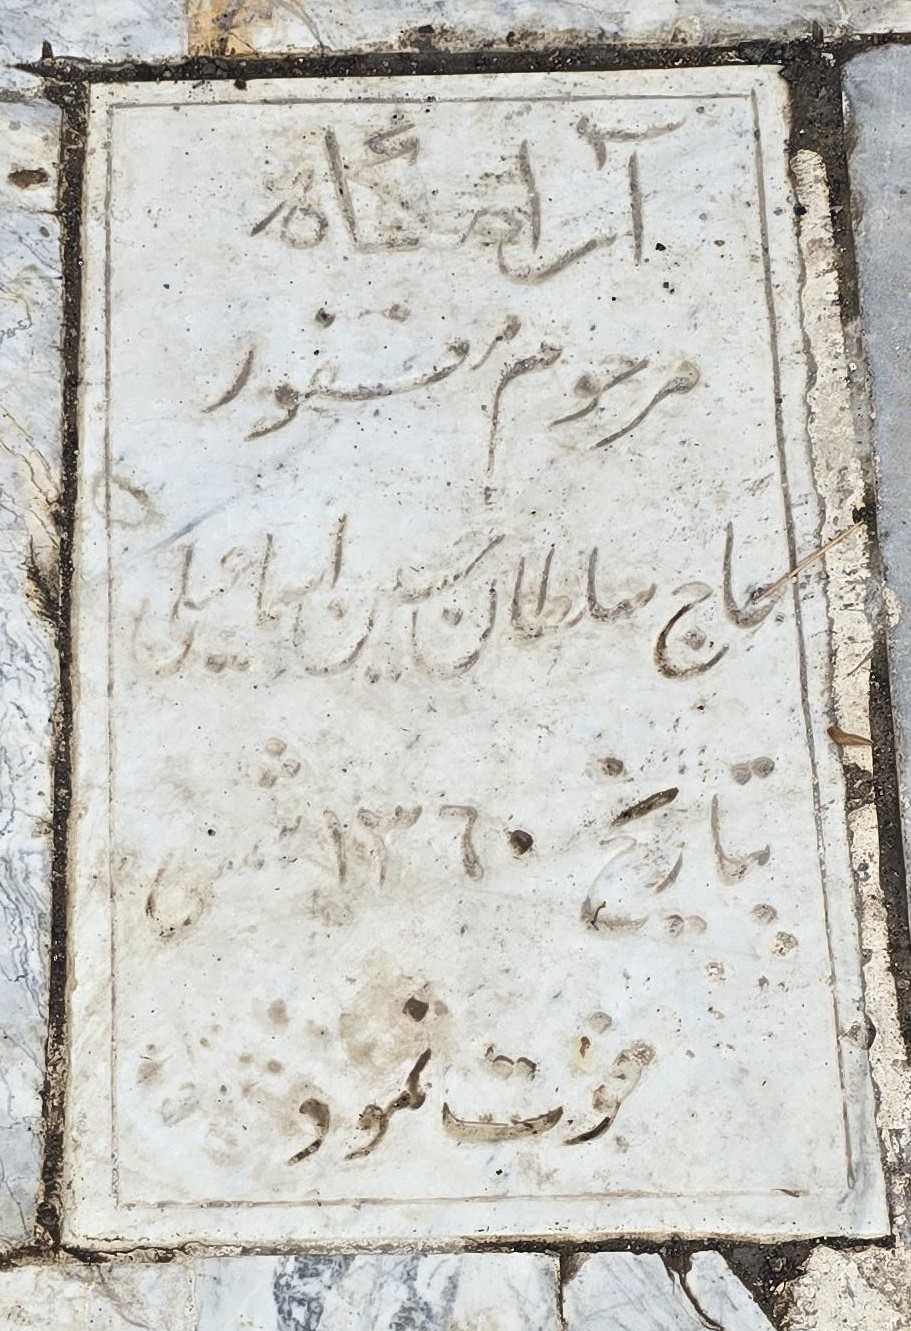 آرامگاه
مرحوم مغفور
حاج سلطان حسین اسماعیلی
بتاریخ ۱۳۶۰ ش
فوت نمود